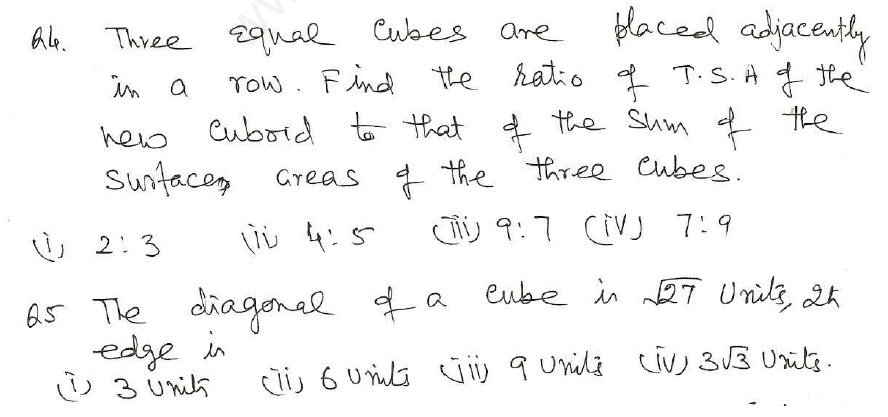 Q4. Three equal cubes are placed adjacently
in a row. Find the ratio of T.S.A of the
new cuboid to that of the sum of the
surfaces areas of the three cubes.
(i) 2:3 (ii) 4:5 (iii) 9:7 (iv) 7:9
Q5 The diagonal of a cube is √27 Units, its
edge is
(i) 3 Units (ii) 6 Units (iii) 9 Units (iv) 3√3 Units.